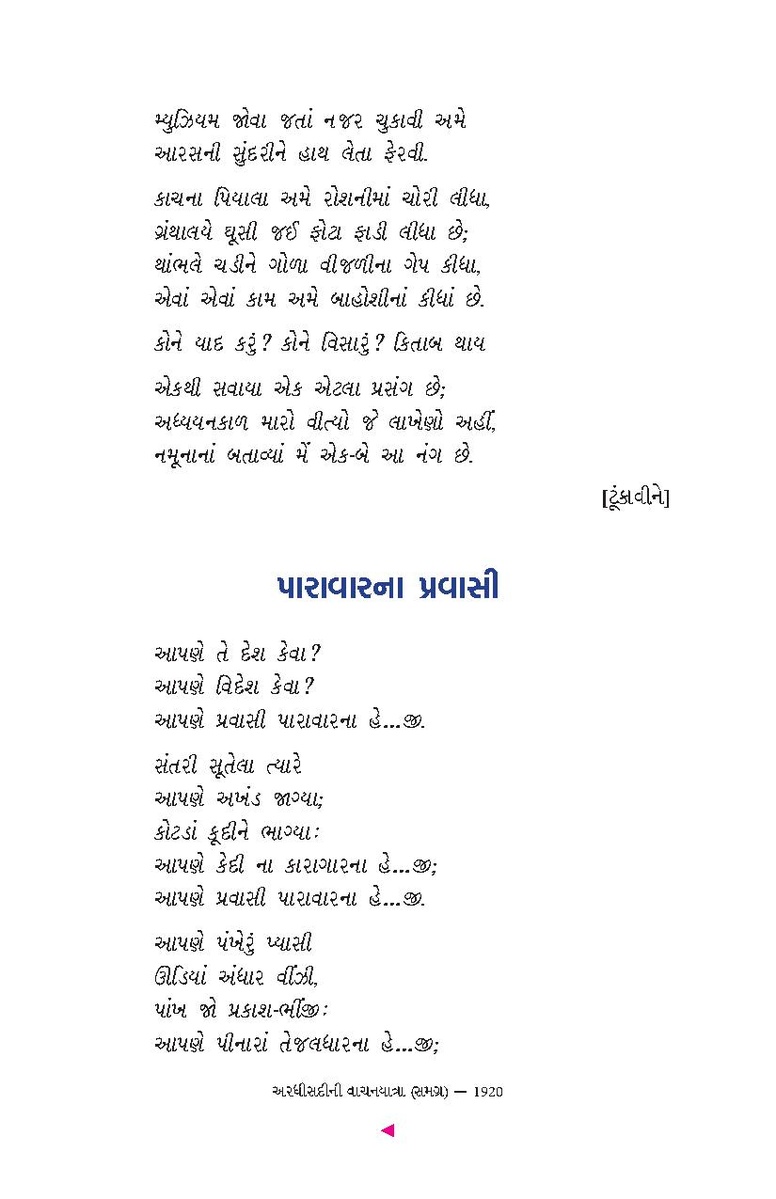 મ્યુઝિયમ જોવા જતાં નજર ચુકાવી અમે
આરસની સુંદરીને હાથ લેતા ફેરવી.
કાચના પિયાલા અમે રોશનીમાં ચોરી લીધા,
ગ્રંથાલયે ઘૂસી જઈ ફોટા ફાડી લીધા છે;
થાંભલે ચડીને ગોળા વીજળીના ગેપ કીધા,
એવાં એવાં કામ અમે બાહોશીનાં કીધાં છે.
કોને યાદ કરું? કોને વિસારું? કિતાબ થાય
એકથી સવાયા એક એટલા પ્રસંગ છે;
અધ્યયનકાળ મારો વીત્યો જે લાખેણો અહીં,
નમૂનાનાં બતાવ્યાં મેં એક-બે આ નંગ છે.
[ટૂંકાવીને]
પારાવારના પ્રવાસી
આપણે તે દેશ કેવા?
આપણે વિદેશ કેવા?
આપણે પ્રવાસી પારાવારના હે...જી.
સંતરી સૂતેલા ત્યારે
આપણે અખંડ જાગ્યા;
કોટડાં કૂદીને ભાગ્યા:
આપણે કેદી ના કારાગારના હે...જી;
આપણે પ્રવાસી પારાવારના હે...જી.
આપણે પંખેરું પ્યાસી
ઊડિયાં અંધાર વીંઝી,
પાંખ જો પ્રકાશ-ભીંજી:
આપણે પીનારાં તેજલધારના હે...જી;
અરધીસદીની વાચનયાત્રા (સમગ્ર) — 1920